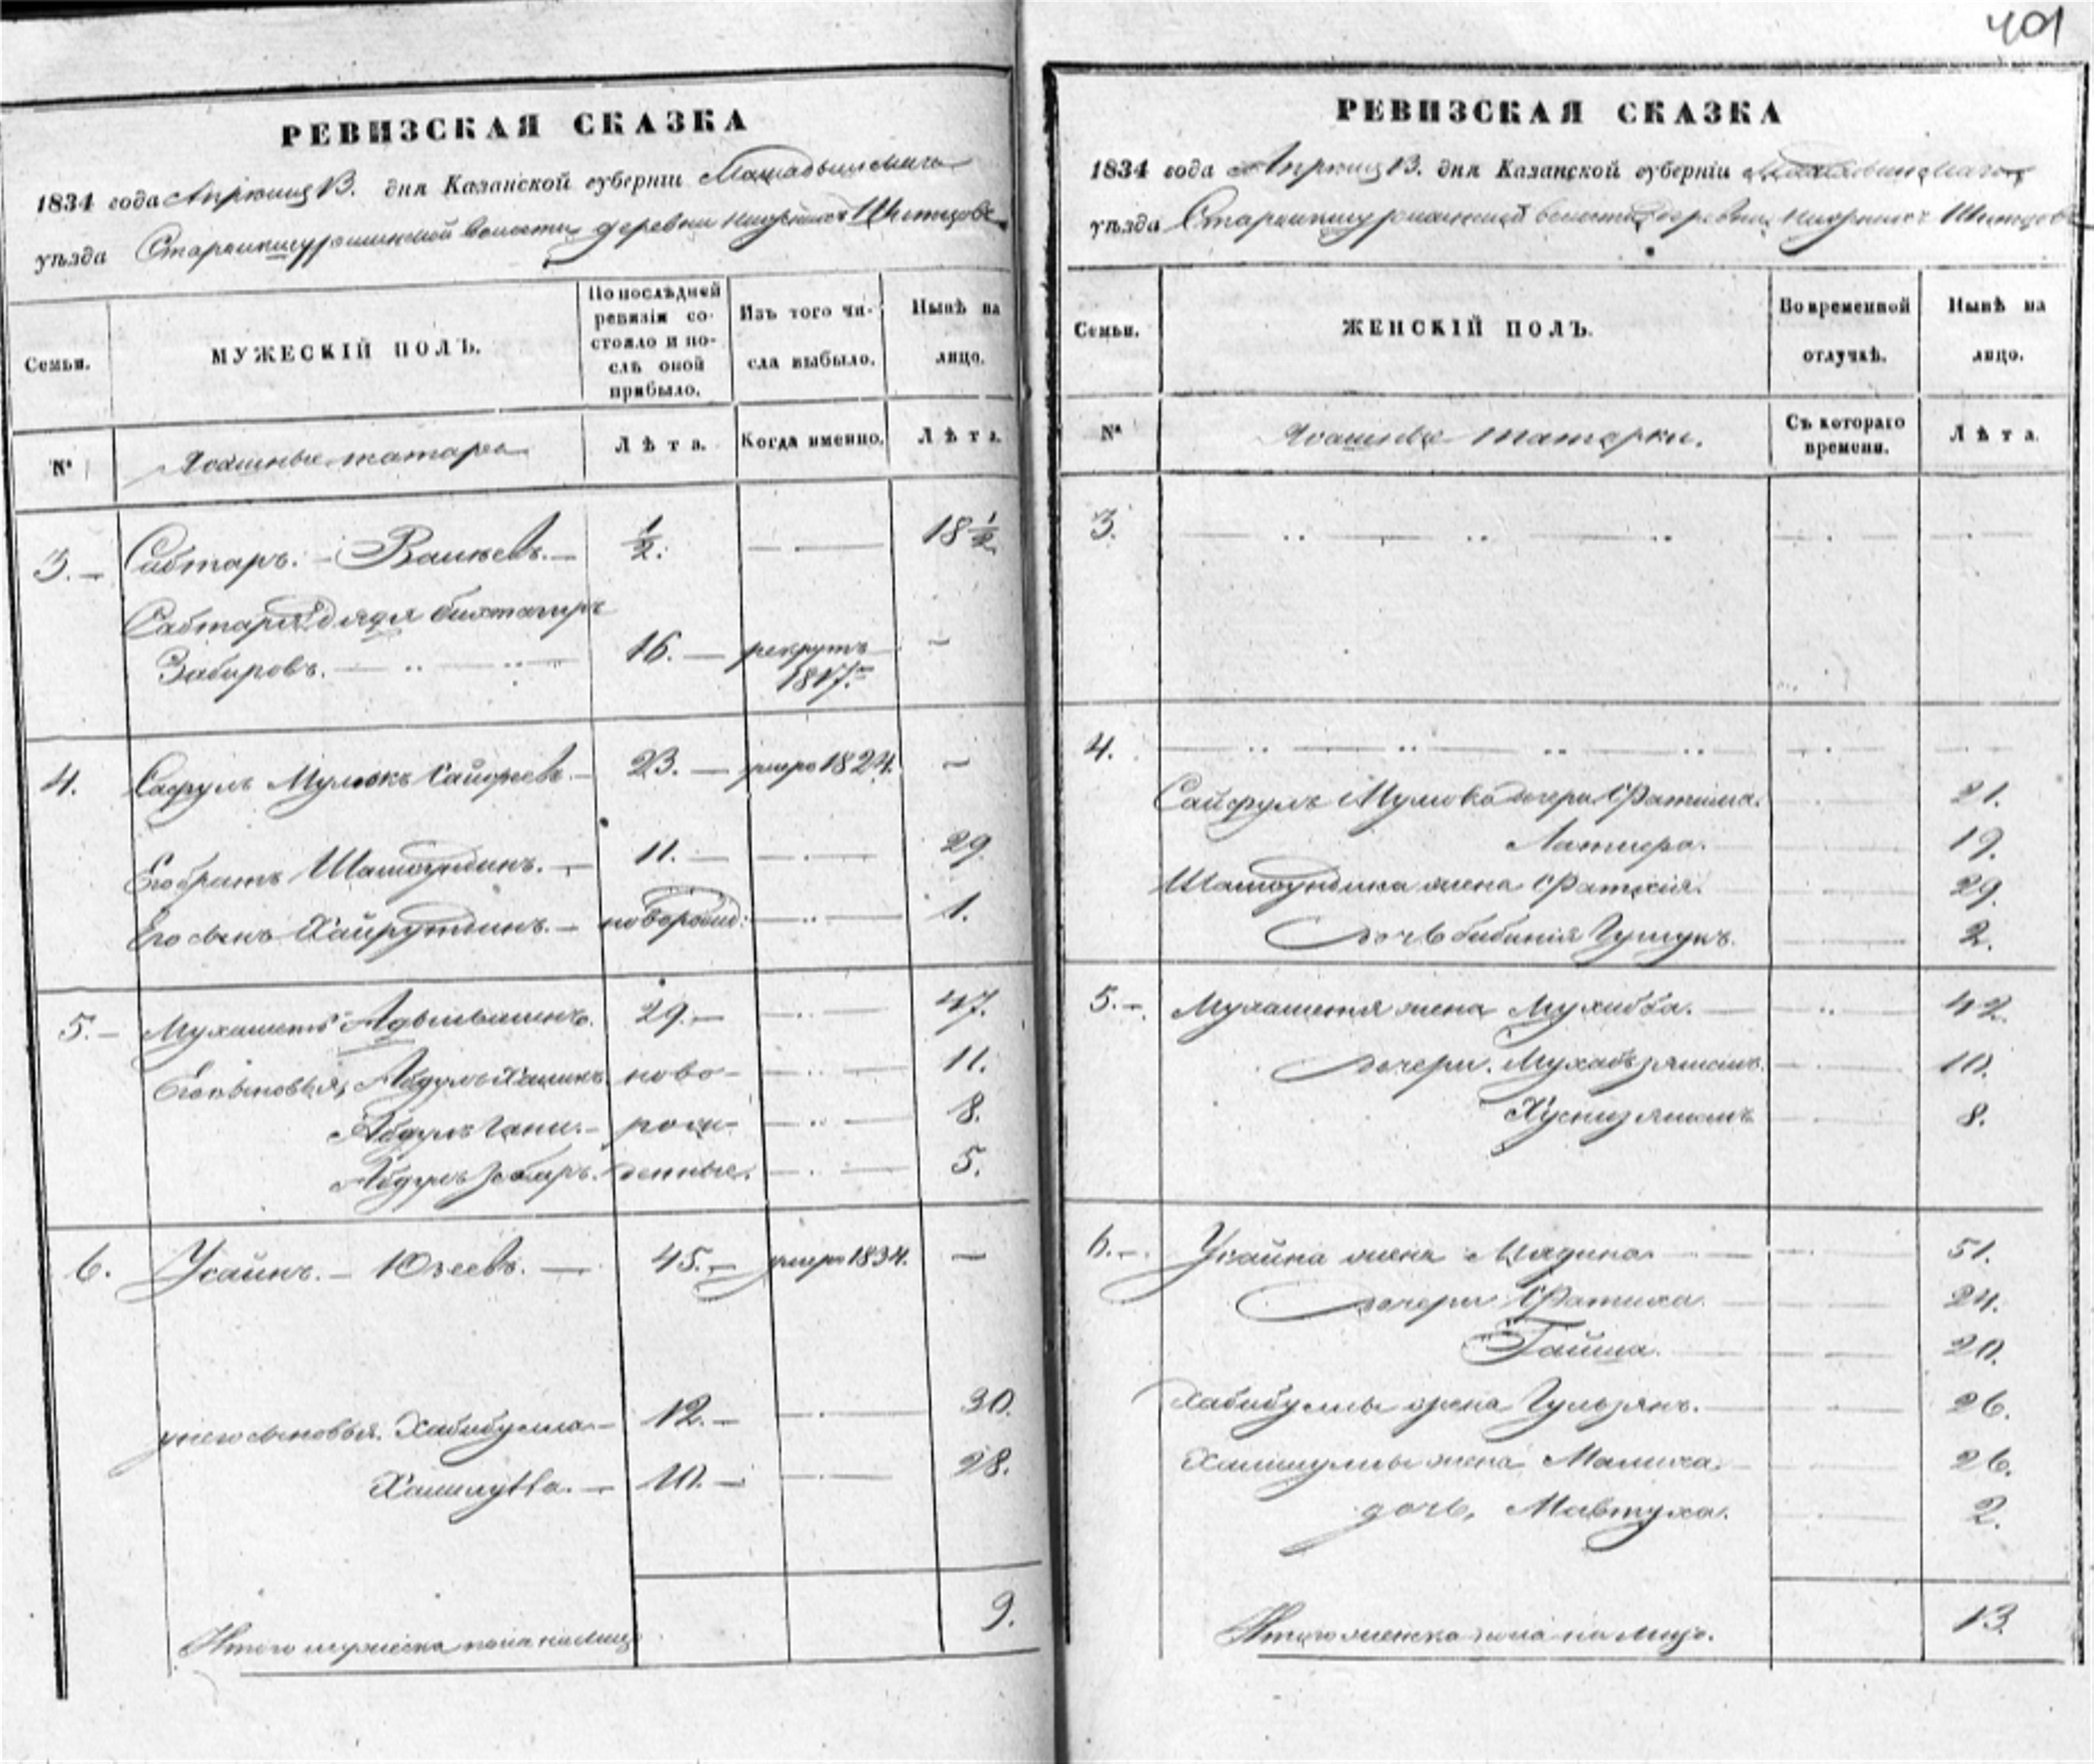 401
РЕВИЗСКАЯ СКАЗКА
1834 года Апрѣля 13. дня Казанской губерніи Мамадышскаго
уѣзда волости деревни Нижнихъ Шитцовъ
Семьи.
МУЖЕСКІЙ ПОЛЪ.
По послѣдней ревизіи состояло и послѣ оной прибыло.
Изъ того числа выбыло.
Нынѣ на лицо.
№
Ясашные татары
Лѣта.
Когда именно.
Лѣта.
3.– Сабтаръ.– Валѣевъ.– ½. 18½
Сабтара дядя Бихтагиръ
Забировъ. 16.– рекрутъ –
1817.
4. Сафулъ Мулюкъ Сайфеевъ.– 23.– умеръ 1824. –
Его братъ Шамсутдинъ.– 11.– 29.
Его сынъ Хайрутдинъ.– новорожд: 1.
5.– Мухаметъ 29.– 47.
Его сыновья, Абдулъ Халикъ ново- 11.
Абдулъ Гани.– рож- 8.
Абдулъ Зябаръ. денные. 5.
6. Усаинъ.– Юзеевъ.– 45.– умеръ 1834. –
у него сыновья. Хабибулла– 12.– 30.
Халиулла.– 10.– 28.
Итого мужеска пола на лицо 9.
РЕВИЗСКАЯ СКАЗКА
1834 года Апрѣля 13. дня Казанской губерніи Мамадышскаго
уѣзда волости деревни Нижнихъ Шитцовъ
Семьи.
ЖЕНСКІЙ ПОЛЪ.
Во временной отлучкѣ.
Нынѣ на лицо.
№
Ясашные татарки.
Съ котораго времени.
Лѣта.
3.
4.
Сайфулъ Мулюка дочери Фатима. 21.
19.
Шамсутдина жена Фатхія. 29.
дочь Бибанія 2.
5.– Мухаметя жена Мухибза. 42.
дочери. Мухабъзямалъ. 10.
Хуснизямалъ 8.
6.– Усаина жена Мядина. 51.
дочери Фатиха. 24.
Гайша. 20.
Хабибуллы жена Гульзянъ. 26.
Халиуллы жена Малиха. 26.
дочь, Мавтуха. 2.
Итого женска пола на лицо. 13.